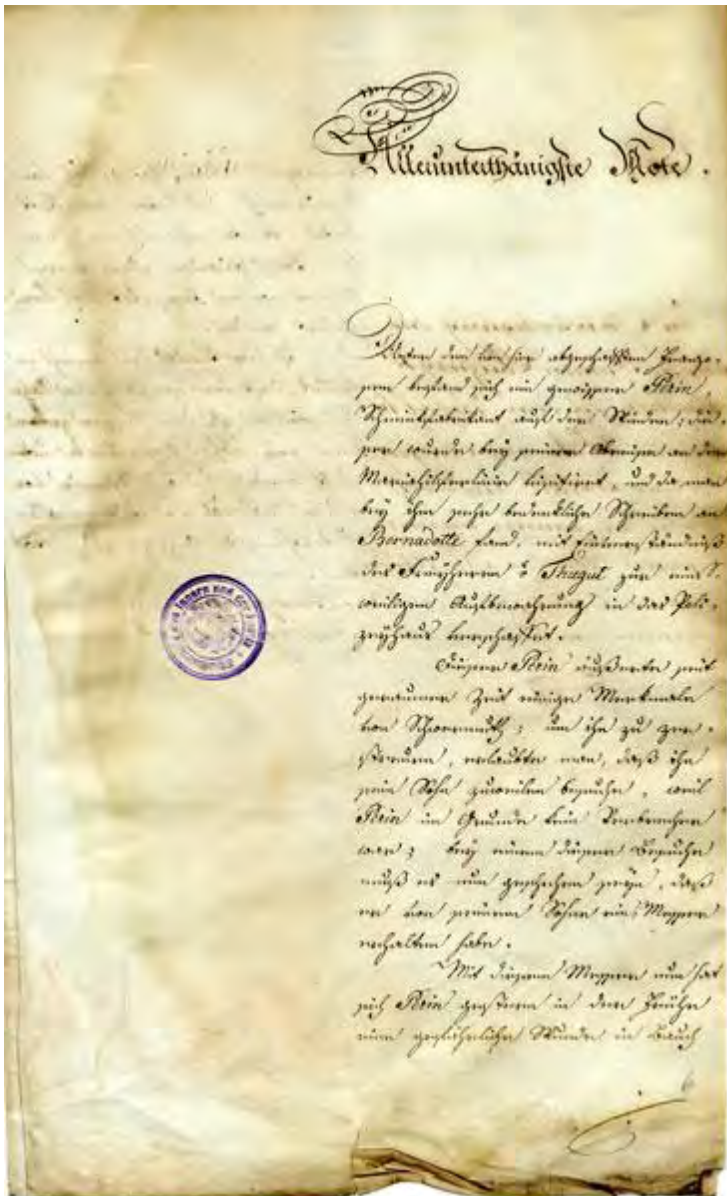 Allerunterthänigste Note.
Unter den von hier abgeschafften Franzo-
sen befand sich ein gewisser Perin,
Schminkfabrikant auf der Wieden; die-
ser wurde bey seiner Abreise an der
Mariahülferlinie visitiert, und da man
bey ihm sehr bedenkliche Schreiben an
Bernadotte fand, mit Einverständniß
des Freyherrn v Thugut zur einst-
weiligen Aufbewahrung in das Poli-
zeyhaus verschaffet.
Dieser Perin äußerte seit
geraumer Zeit einige Merkmale
von Schwermuth; um ihn zu zer-
streuen, erlaubte man, daß ihn
sein Sohn zuweilen besuche, weil
Perin im Grunde kein Verbrecher
war; bey einem dieser Besuche
muß es nun geschehen seyn, daß
er von seinem Sohne ein Messer
erhalten habe.
Mit diesem Messer nun hat
sich Perin gestern in der Frühe
eine gefährliche Wunde in Bauch